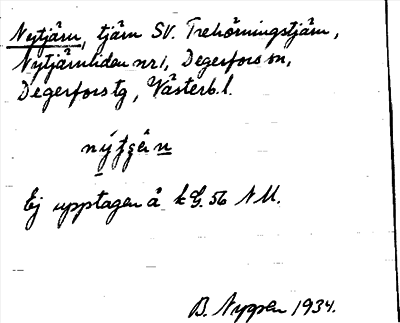 Nytjärn, tjärn SV. Trehörningstjärn,
Nytjärnliden nr 1, Degerfors sn,
Degerfors tg, Västerb. l.
Ej upptagen å k G. 56 NU.
B. Nygren 1934.